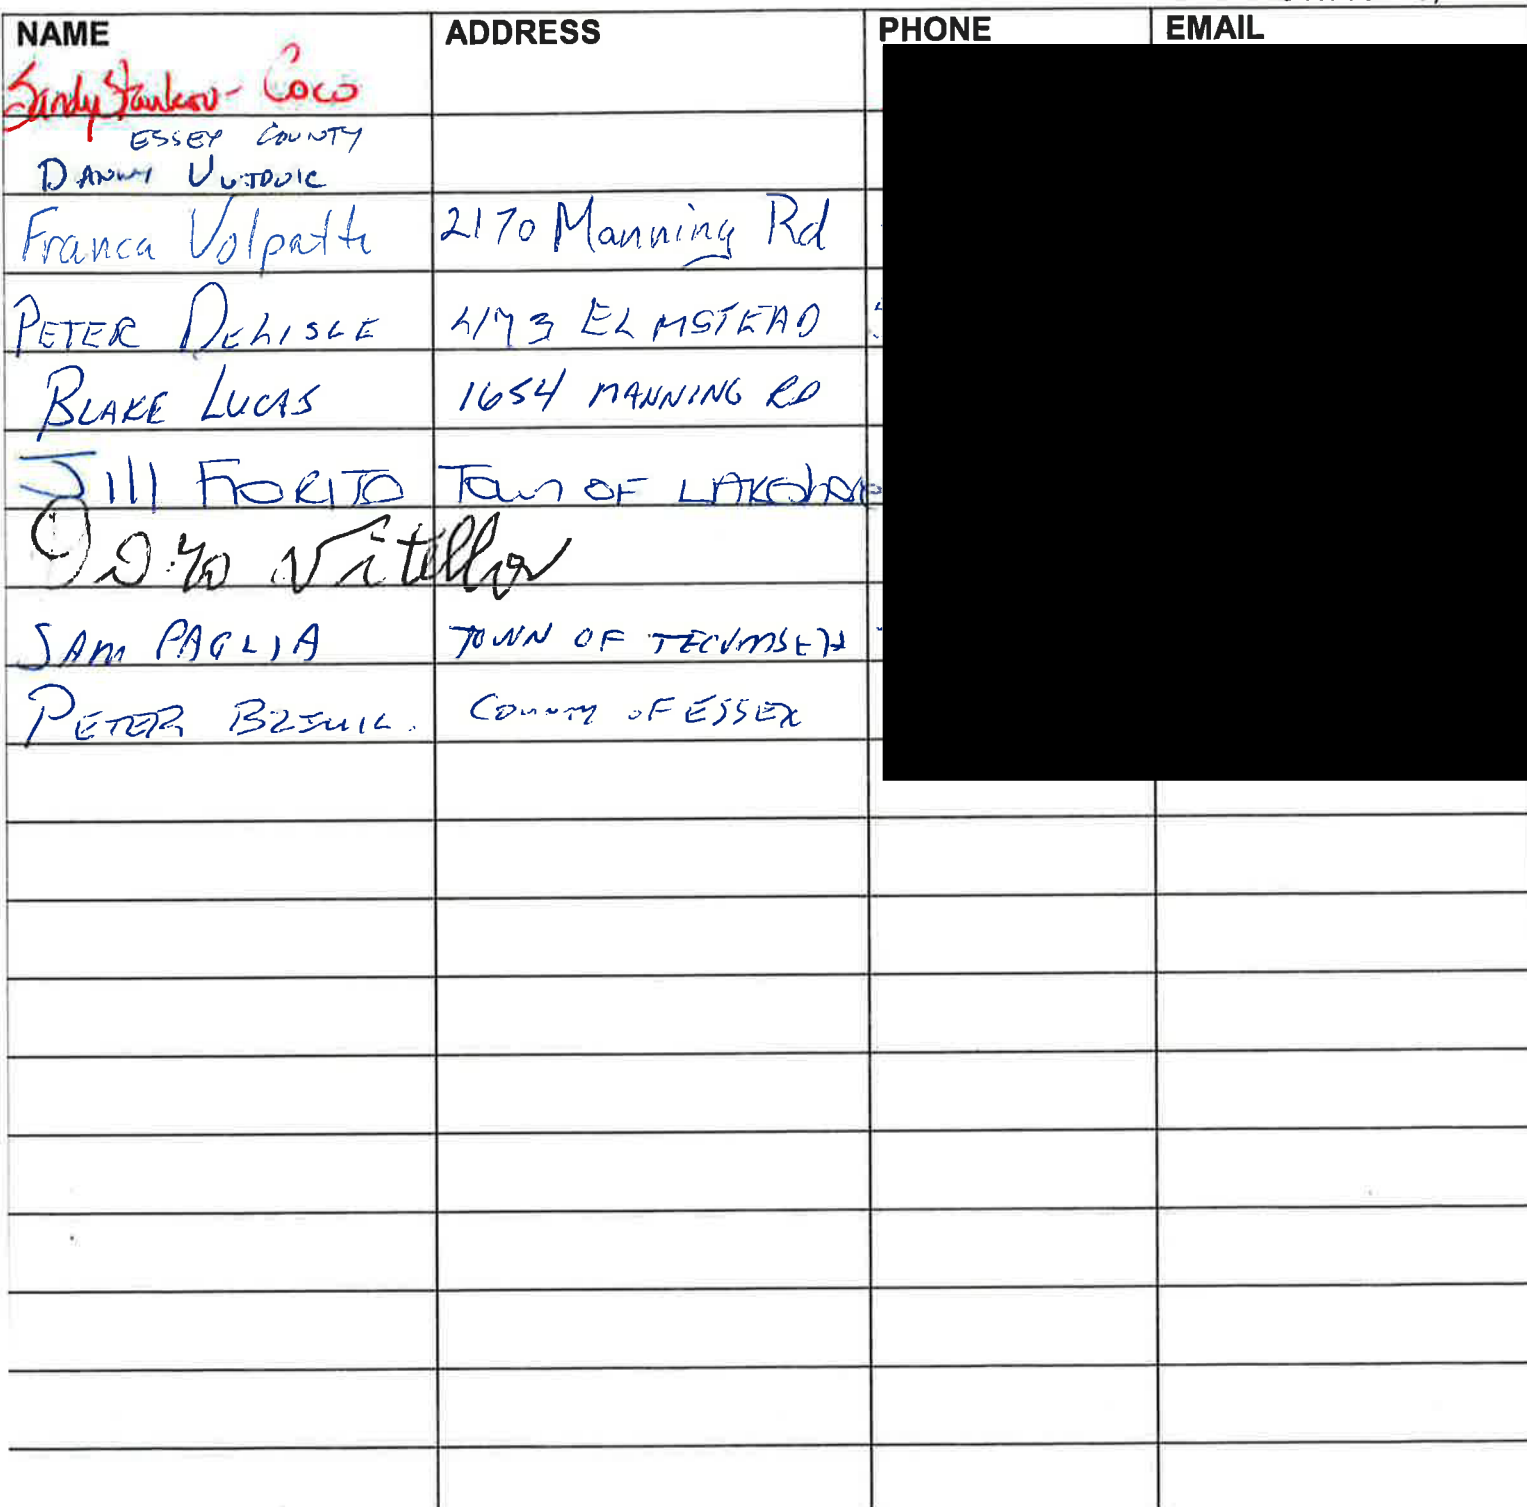 NAME ADDRESS PHONE EMAIL
Sandy Stankov - Coco
ESSEX COUNTY
DANNY VUJOVIC
Franca Volpatti 2170 Manning Rd
PETER DELISLE 4173 ELMSTEAD
BLAKE LUCAS 1654 MANNING RD
Jill FIORITO Town OF LAKEshore
Vitella
SAM PAGLIA TOWN OF TECUMSEH
PETER County OF ESSEX